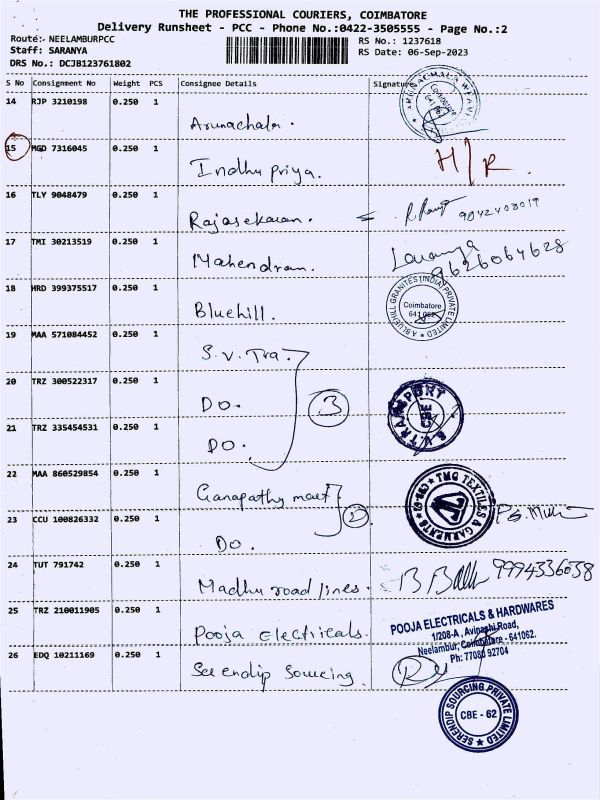 THE PROFESSIONAL COURIERS, COIMBATORE
Delivery Runsheet - PCC - Phone No.:0422-3505555 - Page No.:2
Route:- NEELAMBURPCC RS No.: 1237618
Staff: SARANYA RS Date: 06-Sep-2023
DRS No.: DCJB123761802
S No Consignment No Weight PCS Consignee Details Signature
14 RJP 3210198 0.250 1 Arunachala.
641 062
15 MGD 7316045 0.250 1 Indhu priya. H/R.
16 TLY 9048479 0.250 1 Rajasekaran.
17 TMI 30213519 0.250 1 Mahendran. Lavanya
9626064628
18 HRD 399375517 0.250 1 Bluehill.
BLUEHILL GRANITES (INDIA) PRIVATE LIMITED
Coimbatore
641 062
19 MAA 571084452 0.250 1 S.V. Tra.
20 TRZ 300522317 0.250 1 Do. 3
S.V. TRANSPORT
21 TRZ 335454531 0.250 1 Do.
22 MAA 860529854 0.250 1 Ganapathy maat
TMG TEXTILES & GARMENTS
2
23 CCU 100826332 0.250 1 Do.
24 TUT 791742 0.250 1 Madhu road lines. 9994336038
25 TRZ 210011905 0.250 1 Pooja Electricals.
POOJA ELECTRICALS & HARDWARES
1/208-A, Avinashi Road,
Neelambur, Coimbatore - 641062.
Ph: 77080 92704
26 EDQ 10211169 0.250 1 Serendip Sourcing.
SERENDIP SOURCING PRIVATE LIMITED
CBE - 62